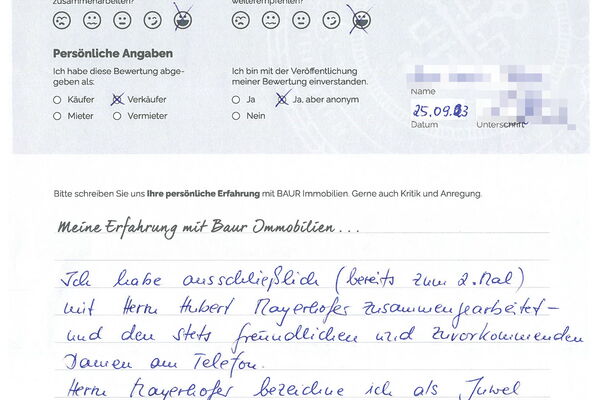 zusammenarbeiten?
weiterempfehlen?
Persönliche Angaben
Ich habe diese Bewertung abge-
geben als:
Käufer Verkäufer
Mieter Vermieter
Ich bin mit der Veröffentlichung
meiner Bewertung einverstanden.
Ja Ja, aber anonym
Nein
Name
25.09.23
Datum Unterschrift
Bitte schreiben Sie uns Ihre persönliche Erfahrung mit BAUR Immobilien. Gerne auch Kritik und Anregung.
Meine Erfahrung mit Baur Immobilien...
Ich habe ausschließlich (bereits zum 2. Mal)
mit Herrn Hubert Mayerhofer zusammengearbeitet –
und den stets freundlichen und zuvorkommenden
Damen am Telefon.
Herrn Mayerhofer bezeichne ich als Juwel